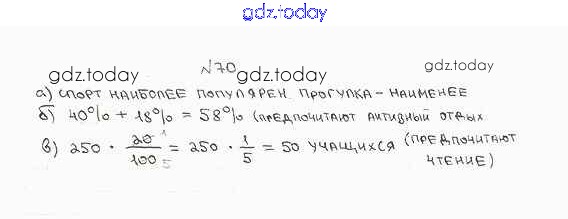 gdz.today
№70
gdz.today gdz.today gdz.today
а) СПОРТ НАИБОЛЕЕ ПОПУЛЯРЕН. ПРОГУЛКА - НАИМЕНЕЕ
б) 40% + 18% = 58% (ПРЕДПОЧИТАЮТ АКТИВНЫЙ ОТДЫХ
в) 250 · 20/100 = 250 · 1/5 = 50 УЧАЩИХСЯ (ПРЕДПОЧИТАЮТ
ЧТЕНИЕ)